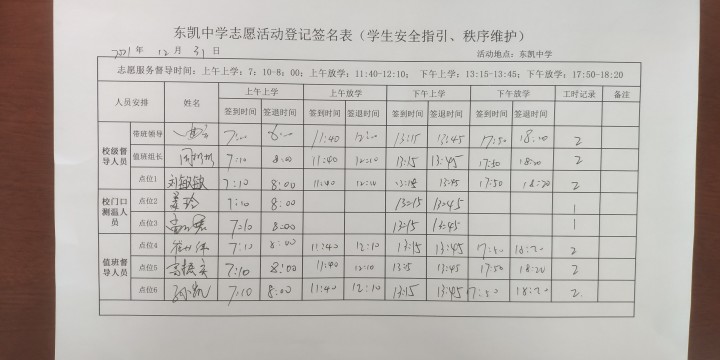 东凯中学志愿活动登记签名表（学生安全指引、秩序维护）
2021年 12月 31日 活动地点：东凯中学
志愿服务督导时间：上午上学：7：10-8：00；上午放学：11:40-12:10； 下午上学：13:15-13:45；下午放学：17:50-18:20
人员安排 姓名 上午上学 上午放学 下午上学 下午放学 工时记录 备注
签到时间 签退时间 签到时间 签退时间 签到时间 签退时间 签到时间 签退时间
校级督导人员 带班领导 11:40 13:15 13:45 17:50 18:20 2
值班组长 7:10 8:00 11:40 12:10 13:15 13:45 17:50 18:20 2
点位1 刘敏敏 7:10 8:00 11:40 12:10 13:15 13:45 17:50 18:20 2
校门口测温人员 点位2 7:10 8:00 13:15 13:45 1
点位3 7:10 8:00 13:15 13:45 1
值班督导人员 点位4 7:10 8:00 11:40 12:10 13:15 13:45 17:50 18:20 2
点位5 7:10 8:00 11:40 12:10 13:15 13:45 17:50 18:20 2
点位6 7:10 8:00 11:40 12:10 13:15 13:45 17:50 18:20 2